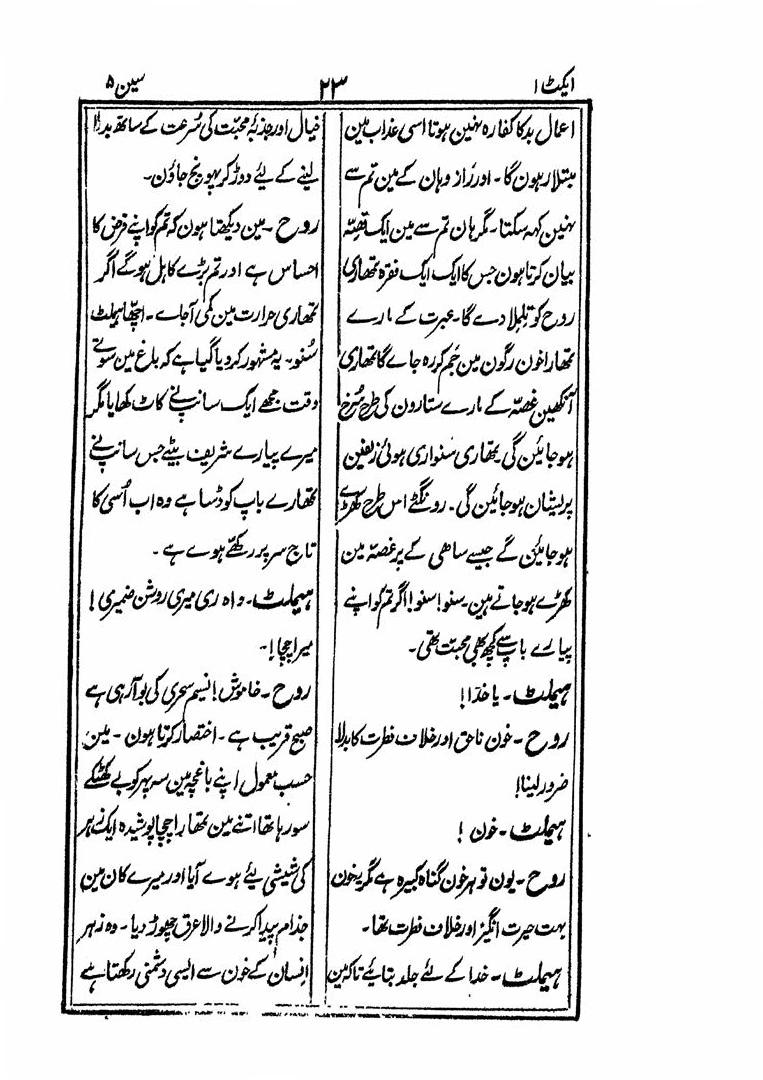 ایکٹ ۱
۲۳
سین ۵
اعمال بد کا کفارہ نہین ہوتا اسی عذاب مین
مبتلا رہون گا۔ اور راز وہان کے مین تم سے
نہین کہہ سکتا۔ مگر ہان تم سے مین ایک قصّہ
بیان کرتا ہون جس کا ایک ایک فقرہ تمھاری
روح کو تلملا دے گا۔ عبرت کے مارے
تمھارا خون رگون مین جم کر رہ جاے گا تمھاری
آنکھین غصّہ کے مارے ستارون کی طرح سُرخ
ہو جائین گی۔ تمھاری سنواری ہوئی زلفین
پریشان ہو جائین گی۔ رونگٹے اس طرح کھڑے
ہو جائین گے جیسے ساھی کے پر غصّہ مین
کھڑے ہو جاتے ہین۔ سنو! سنو! اگر تم کو اپنے
پیارے باپ سے کچھ بھی محبت تھی۔
ہیملٹ۔ یا خدا!
روح۔ خون ناحق اور خلاف فطرت کا بدلا
ضرور لینا!
ہیملٹ۔ خون !
روح۔ یون تو ہر خون گناہ کبیرہ ہے مگر یہ خون
بہت حیرت انگیز اور خلاف فطرت تھا۔
ہیملٹ۔ خدا کے لئے جلد بتایئے تاکہ مین
خیال اور جذبۂ محبّت کی سُرعت کے ساتھ بدلا
لینے کے لیئے دوڑ کر پہونچ جاؤن۔
روح۔ مین دیکھتا ہون کہ تم کو اپنے فرض کا
احساس ہے اور تم بڑے کاہل ہوگے اگر
تمھاری حرارت مین کمی آجاے۔ اچھّا ہیملٹ
سُنو۔ یہ مشہور کر دیا گیا ہے کہ باغ مین سوتے
وقت مجھے ایک سانپ نے کاٹ کھایا مگر
میرے پیارے شریف بیٹے جس سانپ نے
تمھارے باپ کو ڈسا ہے وہ اب اُسی کا
تاج سر پر رکھّے ہوے ہے۔
ہیملٹ۔ واہ ری میری روشن ضمیری!
میرا چچا!۔
روح۔ خاموش! نسیم سحری کی بو آرہی ہے
صبح قریب ہے۔ اختصار کرتا ہون۔ مین
حسب معمول اپنے باغچہ مین سہ پہر کو بے کھٹکے
سو رہا تھا اتنے مین تمھارا چچا پوشیدہ ایک زہر
کی شیشی لیئے ہوے آیا اور میرے کان مین
جذام پیدا کرنے والا عرق چھوڑ دیا۔ وہ زہر
انسان کے خون سے ایسی دشمنی رکھتا ہے